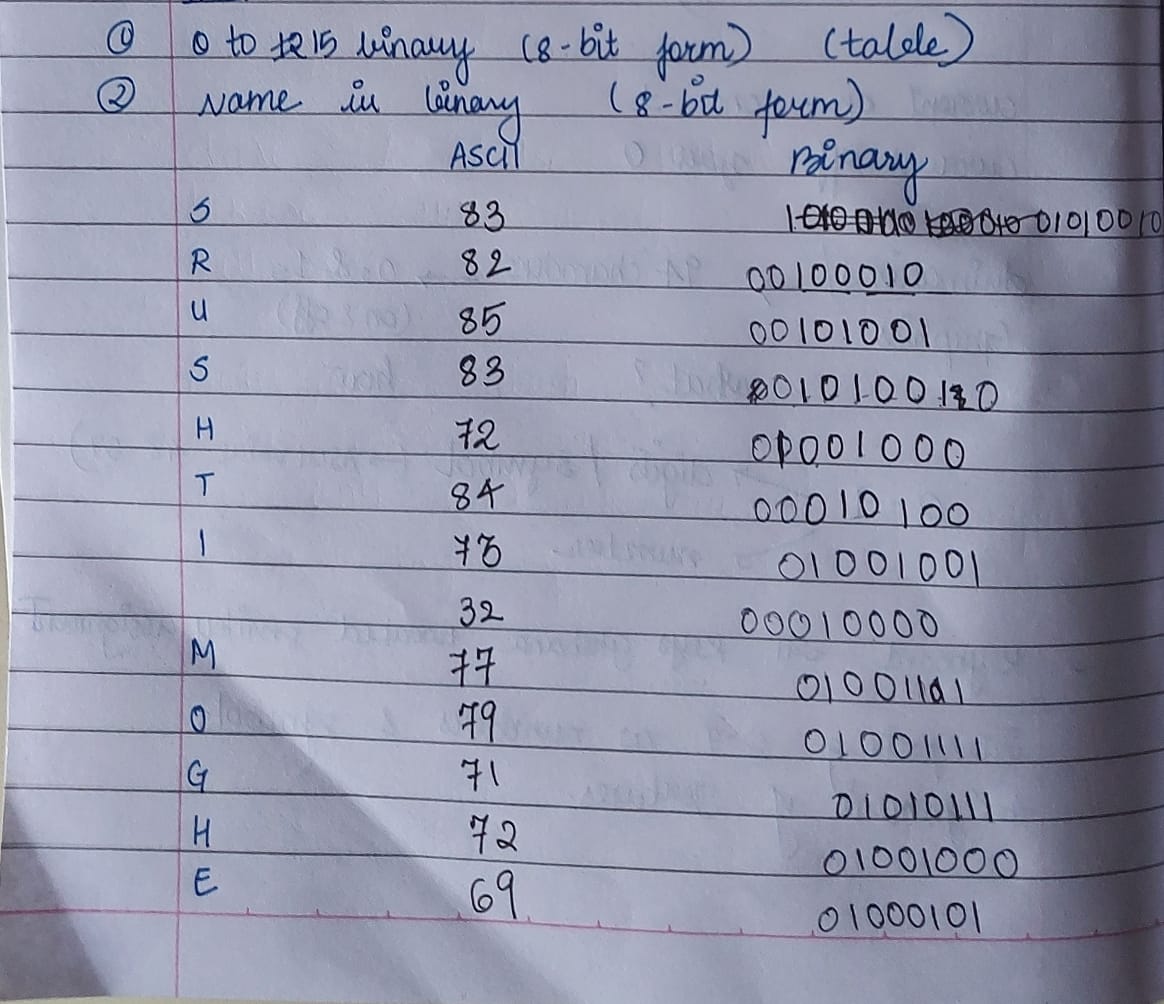 ① 0 to 15 binary (8-bit form) (table)
② Name in binary (8-bit form)
ASCII Binary
S 83 01010010
R 82 00100010
U 85 00101001
S 83 0010100110
H 72 01001000
T 84 00010100
I 73 01001001
32 00010000
M 77 01001101
O 79 01001111
G 71 01010111
H 72 01001000
E 69 01000101